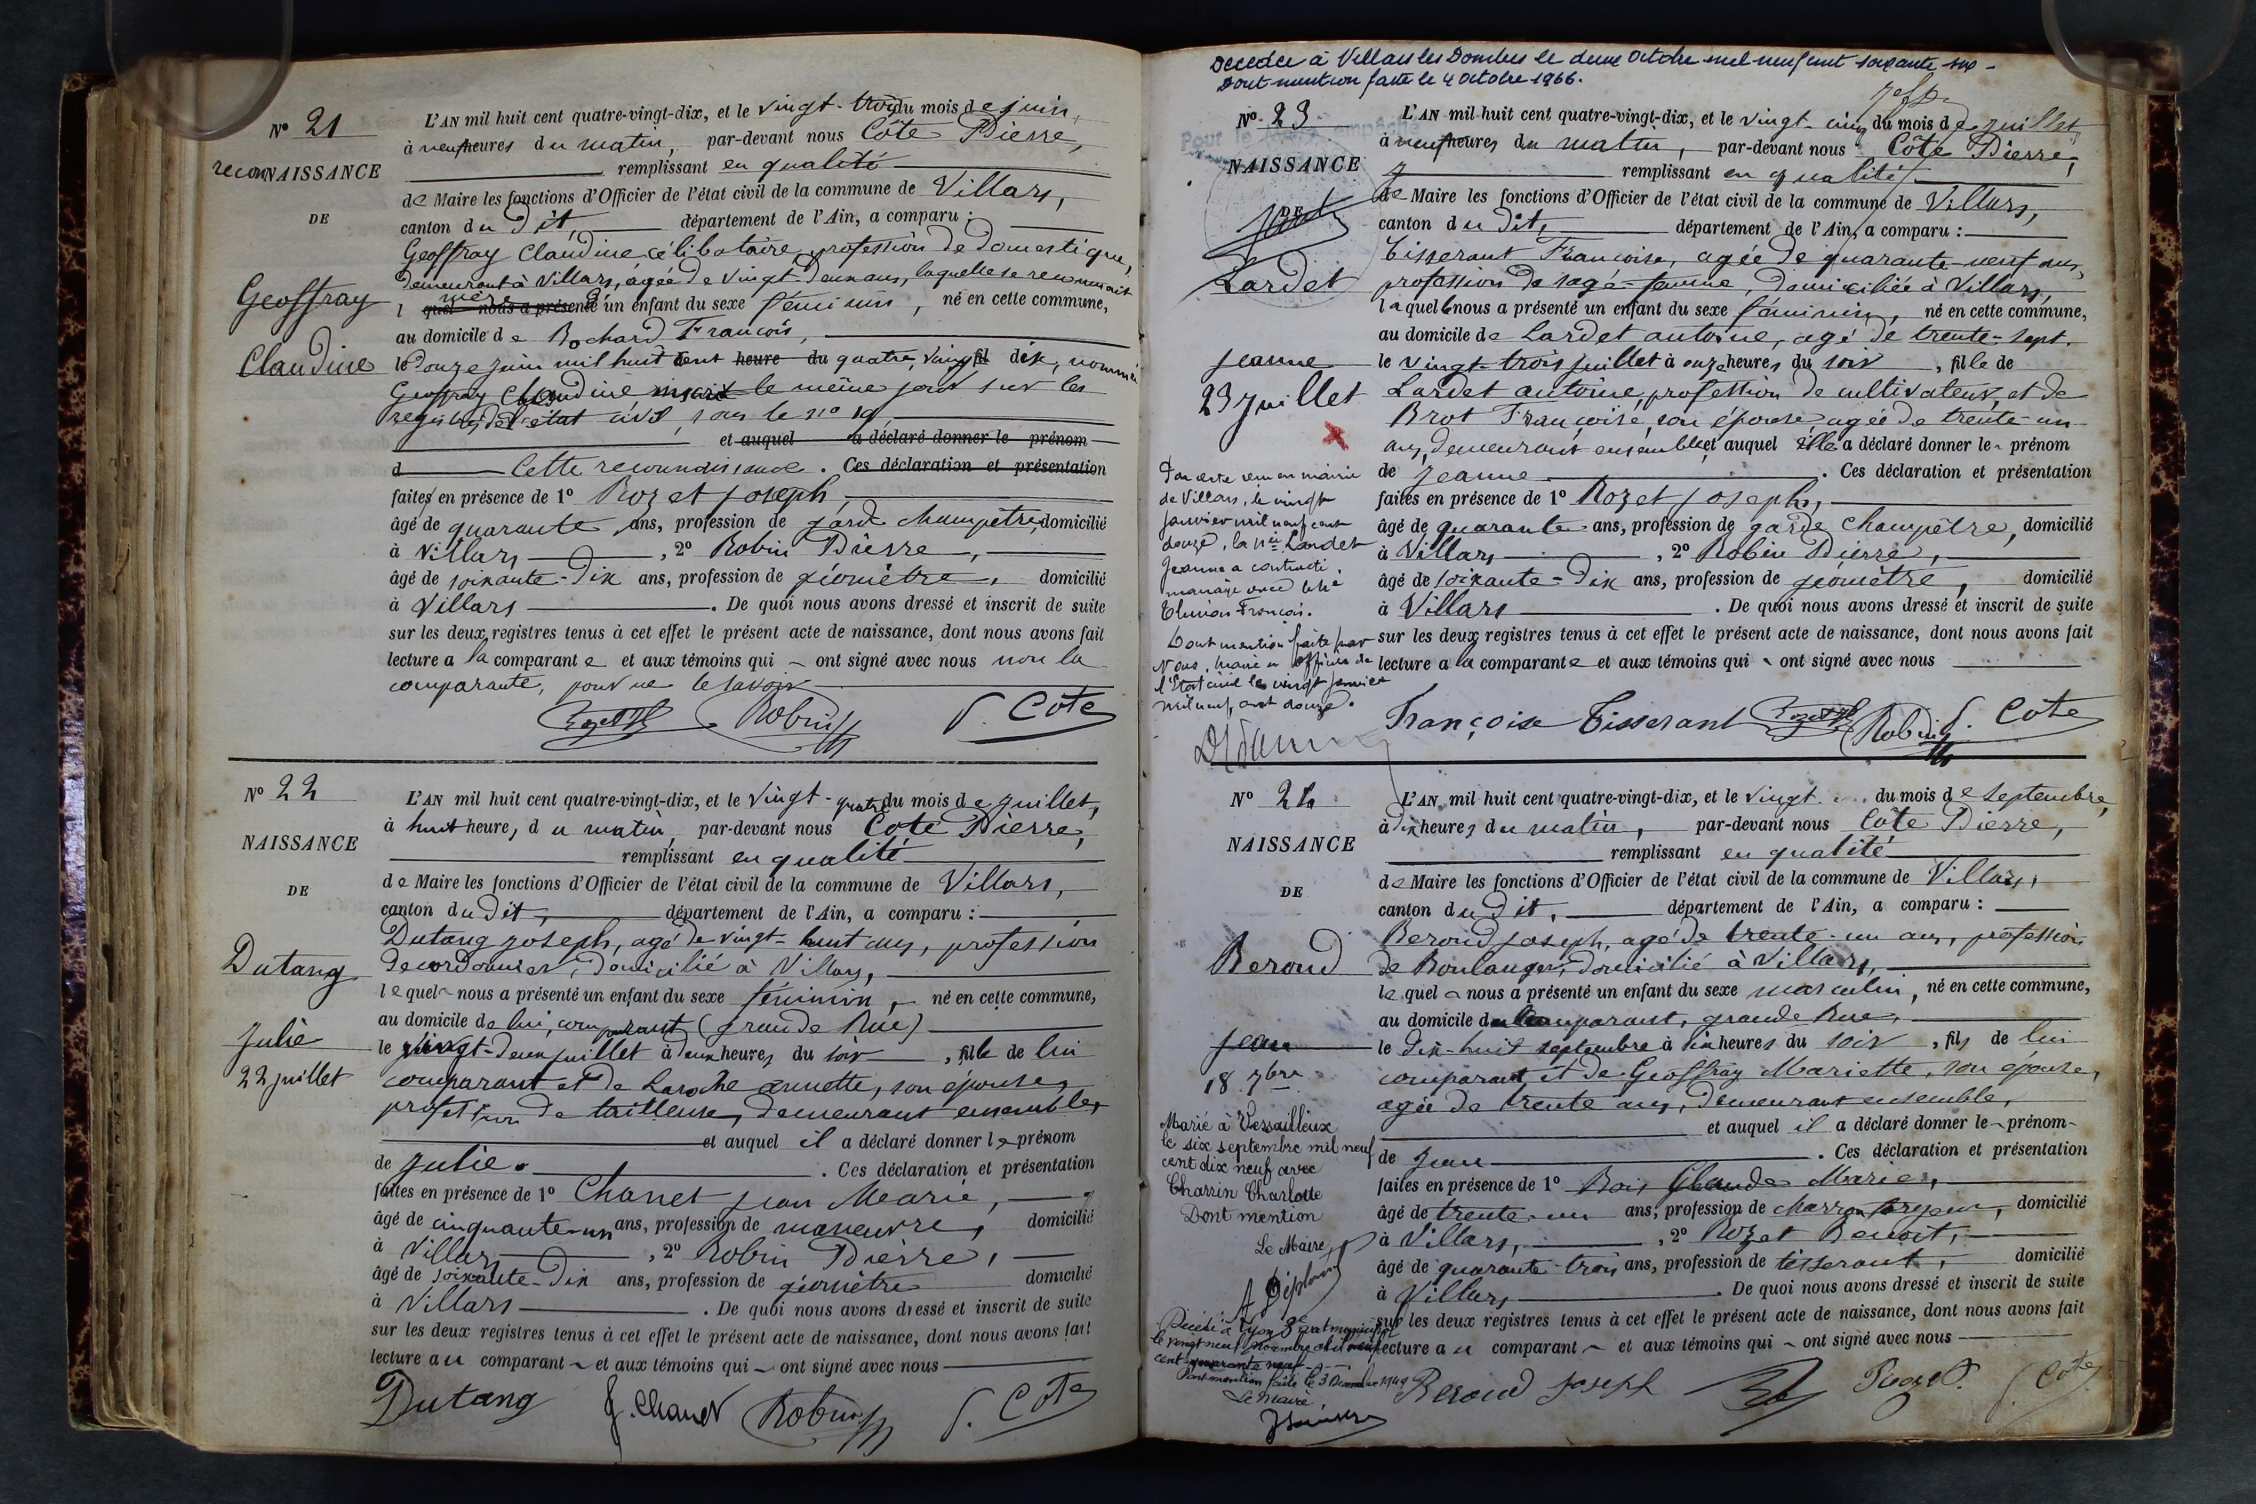 N° 21
reconNAISSANCE
DE
Geoffray
Claudine
L'AN mil huit cent quatre-vingt-dix, et le vingt-trois du mois de juin,
à neuf heures du matin, par-devant nous Côte Pierre,
remplissant en qualité
de Maire les fonctions d'Officier de l'état civil de la commune de Villars,
canton du dit, département de l'Ain, a comparu :
Geoffray Claudine célibataire, profession de domestique,
demeurant à Villars, âgée de vingt-deux ans, laquelle se reconnait
mère
l quel nous a présenté d'un enfant du sexe féminin, né en cette commune,
au domicile de Rochard François,
le douze juin mil huit cent heure du quatre vingt fil dix, nommée
Geoffray Claudine, inscrit le même jour sur les
registres de l'état civil, sous le n° 19,
et auquel a déclaré donner le prénom
d Cette reconnaissance. Ces déclaration et présentation
faites en présence de 1° Rozet Joseph,
âgé de quarante ans, profession de garde champêtre, domicilié
à Villars, 2° Robin Pierre,
âgé de soixante-dix ans, profession de géomètre, domicilié
à Villars. De quoi nous avons dressé et inscrit de suite
sur les deux registres tenus à cet effet le présent acte de naissance, dont nous avons fait
lecture a la comparante et aux témoins qui ont signé avec nous non la
comparante, pour ne le savoir
Robin P. Cote
N° 22
NAISSANCE
DE
Dutang
Julie
22 juillet
L'AN mil huit cent quatre-vingt-dix, et le vingt-quatre du mois de juillet,
à huit heures du matin, par-devant nous Côte Pierre,
remplissant en qualité
de Maire les fonctions d'Officier de l'état civil de la commune de Villars,
canton du dit, département de l'Ain, a comparu :
Dutang Joseph, agé de vingt-huit ans, profession
de cordonnier, domicilié à Villars,
lequel nous a présenté un enfant du sexe féminin, né en cette commune,
au domicile de lui, comparant (grande Rue)
le vingt-deux juillet à deux heures du soir, fille de lui
comparant et de Laroche Annette, son épouse,
profession de tailleuse, demeurant ensemble,
et auquel il a déclaré donner le prénom
de Julie. Ces déclaration et présentation
faites en présence de 1° Chanet Jean Marie,
âgé de cinquante-un ans, profession de manœuvre, domicilié
à Villars, 2° Robin Pierre,
âgé de soixante-dix ans, profession de géomètre domicilié
à Villars. De quoi nous avons dressé et inscrit de suite
sur les deux registres tenus à cet effet le présent acte de naissance, dont nous avons fait
lecture au comparant et aux témoins qui ont signé avec nous
Dutang J. Chanet Robin P. Cote
Décédée à Villars les Dombes le deux Octobre mil neuf cent soixante six
Dont mention faite le 4 octobre 1966.
N° 23
Pour le empêché
NAISSANCE
DE
Lardet
Jeanne
23 juillet
L'AN mil huit cent quatre-vingt-dix, et le vingt-cinq du mois de juillet,
à neuf heures du matin, par-devant nous Côte Pierre,
remplissant en qualité
de Maire les fonctions d'Officier de l'état civil de la commune de Villars,
canton du dit, département de l'Ain, a comparu :
Tisserant Françoise, agée de quarante-neuf ans,
profession de sage-femme, domiciliée à Villars,
laquelle nous a présenté un enfant du sexe féminin, né en cette commune,
au domicile de Lardet antoine, agé de trente-sept,
le vingt-trois juillet à onze heures du soir, fille de
Lardet antoine, profession de cultivateur, et de
Brot Françoise, son épouse, agée de trente-un
ans, demeurant ensemble, et auquel elle a déclaré donner le prénom
de Jeanne. Ces déclaration et présentation
faites en présence de 1° Rozet Joseph,
âgé de quarante ans, profession de garde champêtre, domicilié
à Villars, 2° Robin Pierre,
âgé de soixante-dix ans, profession de géomètre, domicilié
à Villars. De quoi nous avons dressé et inscrit de suite
sur les deux registres tenus à cet effet le présent acte de naissance, dont nous avons fait
lecture a la comparante et aux témoins qui ont signé avec nous
Françoise Tisserant Robin P. Cote
Par acte reçu en mairie
de Villars, le vingt
janvier mil neuf cent
douze, la née Lardet
Jeanne a contracté
mariage avec
François.
Dont mention faite par
Nous, Maire en officier de
l'Etat civil le vingt janvier
mil neuf cent douze.
N° 24
NAISSANCE
DE
Beroud
Jean
18 7bre
L'AN mil huit cent quatre-vingt-dix, et le vingt du mois de septembre,
à dix heures du matin, par-devant nous Côte Pierre,
remplissant en qualité
de Maire les fonctions d'Officier de l'état civil de la commune de Villars,
canton du dit, département de l'Ain, a comparu :
Beroud Joseph, agé de trente-un ans, profession
de Boulanger, domicilié à Villars,
lequel nous a présenté un enfant du sexe masculin, né en cette commune,
au domicile du comparant, grande Rue,
le dix-huit septembre à six heures du soir, fils de lui
comparant, et de Geoffray Mariette, son épouse,
agée de trente ans, demeurant ensemble,
et auquel il a déclaré donner le prénom
de Jean. Ces déclaration et présentation
faites en présence de 1° Bois Claude Marie,
âgé de trente-un ans, profession de domicilié
à Villars, 2° Rozet Benoit,
âgé de quarante-trois ans, profession de tisserant, domicilié
à Villars. De quoi nous avons dressé et inscrit de suite
sur les deux registres tenus à cet effet le présent acte de naissance, dont nous avons fait
lecture au comparant et aux témoins qui ont signé avec nous
Beroud Joseph Rozet B. P. Cote
Marié à Versailleux
le six septembre mil neuf
cent dix neuf avec
Charrin Charlotte
Dont mention
Le Maire
Décédé à Lyon 3e
le vingt neuf novembre mil neuf
cent quarante neuf
Dont mention faite le 3 Décembre 1949
Le Maire